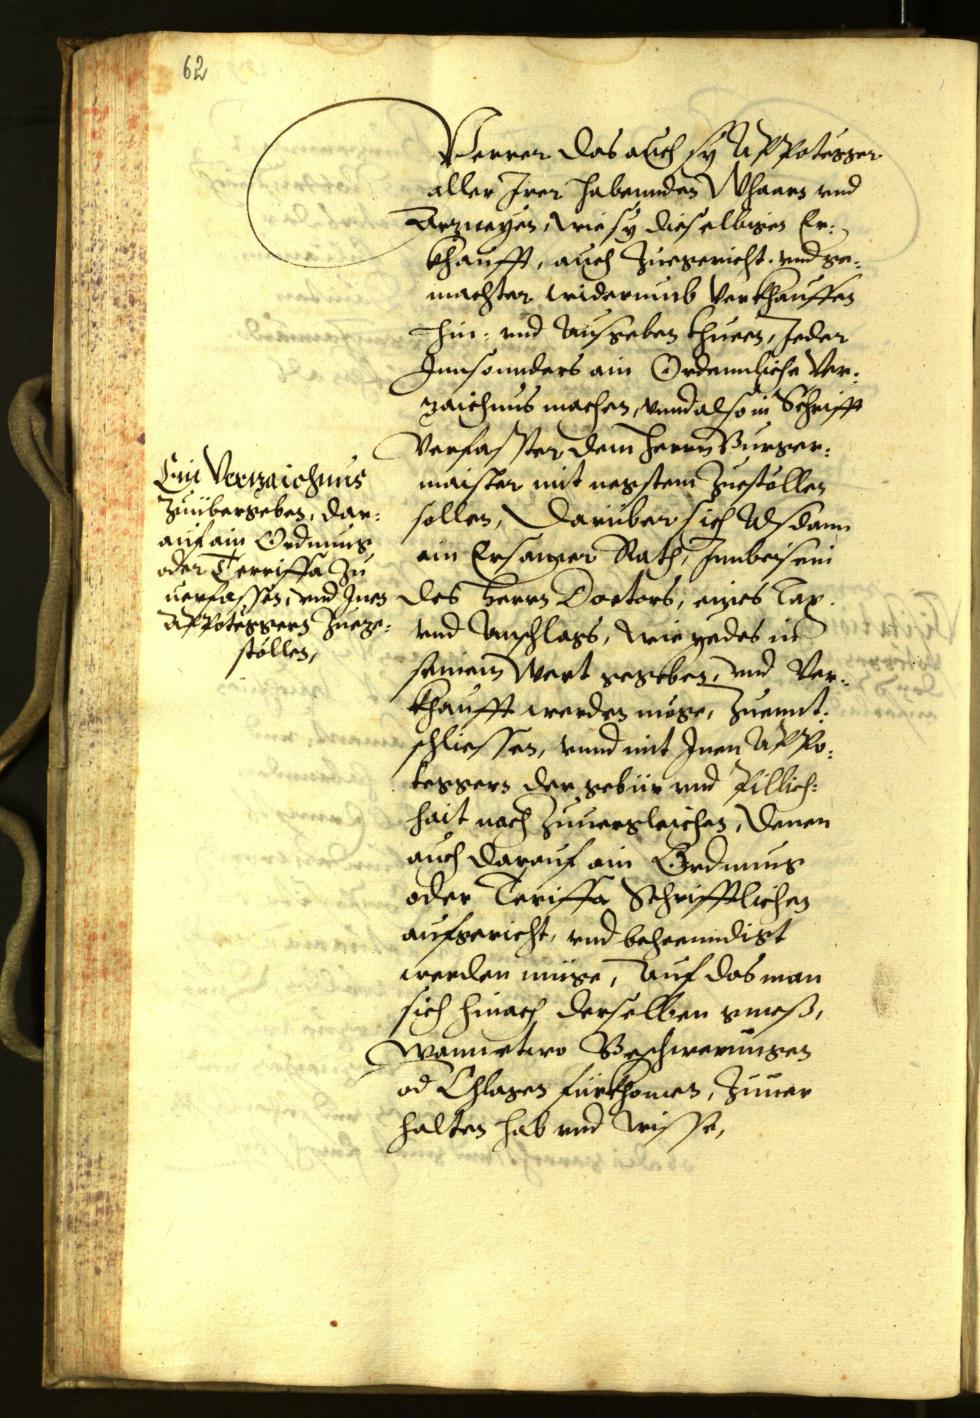 62
Verrer das auch sy Appotegger
aller Irer habennden Whaarn vnd
Arzneyen, wie sy dieselbigen Er:
khaufft, auch Zuegericht. vnd ge:
machter widerumb Verkhauffen
hin: vnd Ausgeben thuen, Jeder
Innsonnders ain Ordennliche Ver:
zaichnus machen, vnnd also in Schrifft
Verfasster dem herrn Burger:
maister mit negstem Zuestöllen
sollen, Darüber sich Alsdann
ein Ersamer Rath, Innbeisein
des herrn Doctors, eines Tax
vnd Anschlags, wie yedes in
seinem Wert gegeben, vnd Ver:
khaufft werden müge, Zuennt:
schliessen, vnnd mit Inen Appo:
teggern der gebür vnd Pillich:
hait nach Zuuergleichen, Denen
auch darauf ain Ordnung
oder Teriffa Schrifftlichen
aufgericht, vnd beheenndigt
werden müge, Auf das man
sich hinach derselben gmeß,
Wann etwo Beschwerungen
od Chlagen fürkhomen, Zuuer
halten hab vnd wisse,
Ein Verzaichnus
Zuübergeben, dar:
auf ain Ordnung
oder Terriffa Zu
uerfassen, vnd Inen
Appoteggern Zuege:
stöllen,